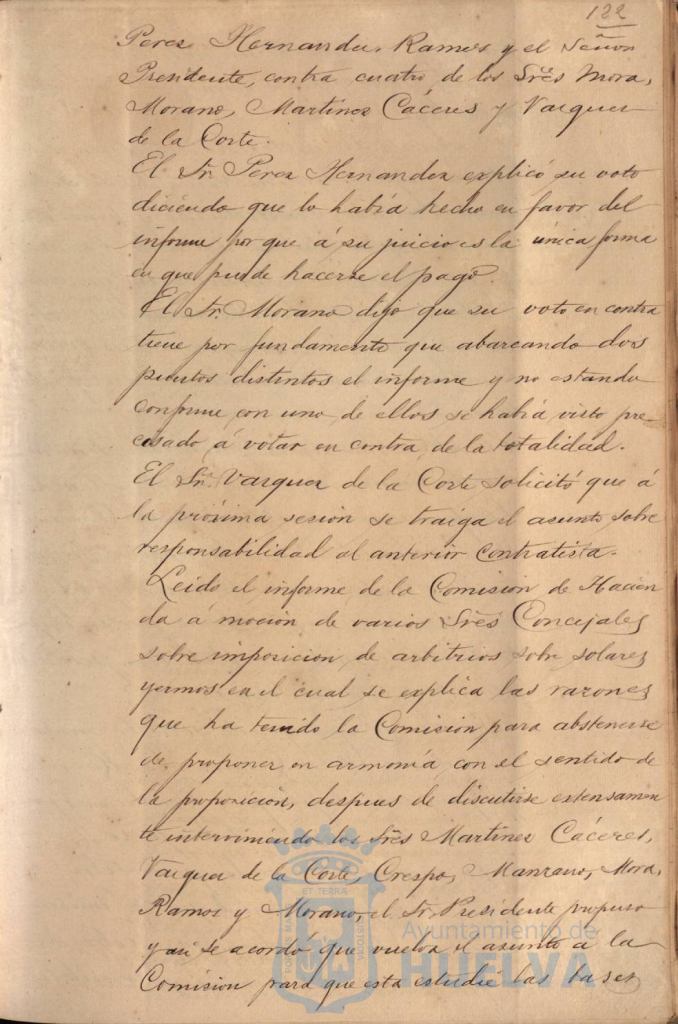 122
Perez Hernandez, Ramos y el Señor
Presidente, contra cuatro de los Sres Mora,
Morano, Martinez Cáceres y Vazquez
de la Corte.
El Sr. Perez Hernandez explicó su voto
diciendo que lo había hecho en favor del
informe por que á su juicio es la única forma
en que puede hacerse el pago.
El Sr. Morano dijo que su voto en contra
tiene por fundamento que abarcando dos
puntos distintos el informe y no estando
conforme con uno de ellos se había visto pre-
cisado á votar en contra de la totalidad.
El Sr. Vazquez de la Corte solicitó que á
la próxima sesión se traiga el asunto sobre
responsabilidad al anterior contratista.
Leido el informe de la Comisión de Hacien
da á moción de varios Sres Concejales
sobre imposicion de arbitrios sobre solares
yermos en el cual se explica las razones
que ha tenido la Comision para abstenerse
de proponer en armonía con el sentido de
la proposición, despues de discutirse extensamen
te interviniendo los Sres Martinez Cáceres,
Vazquez de la Corte, Crespo, Manzano, Mora,
Ramos y Morano, el Sr. Presidente propuso
y asi se acordó que vuelva el asunto á la
Comision para que esta estudie las bases
Ayuntamiento de
HUELVA